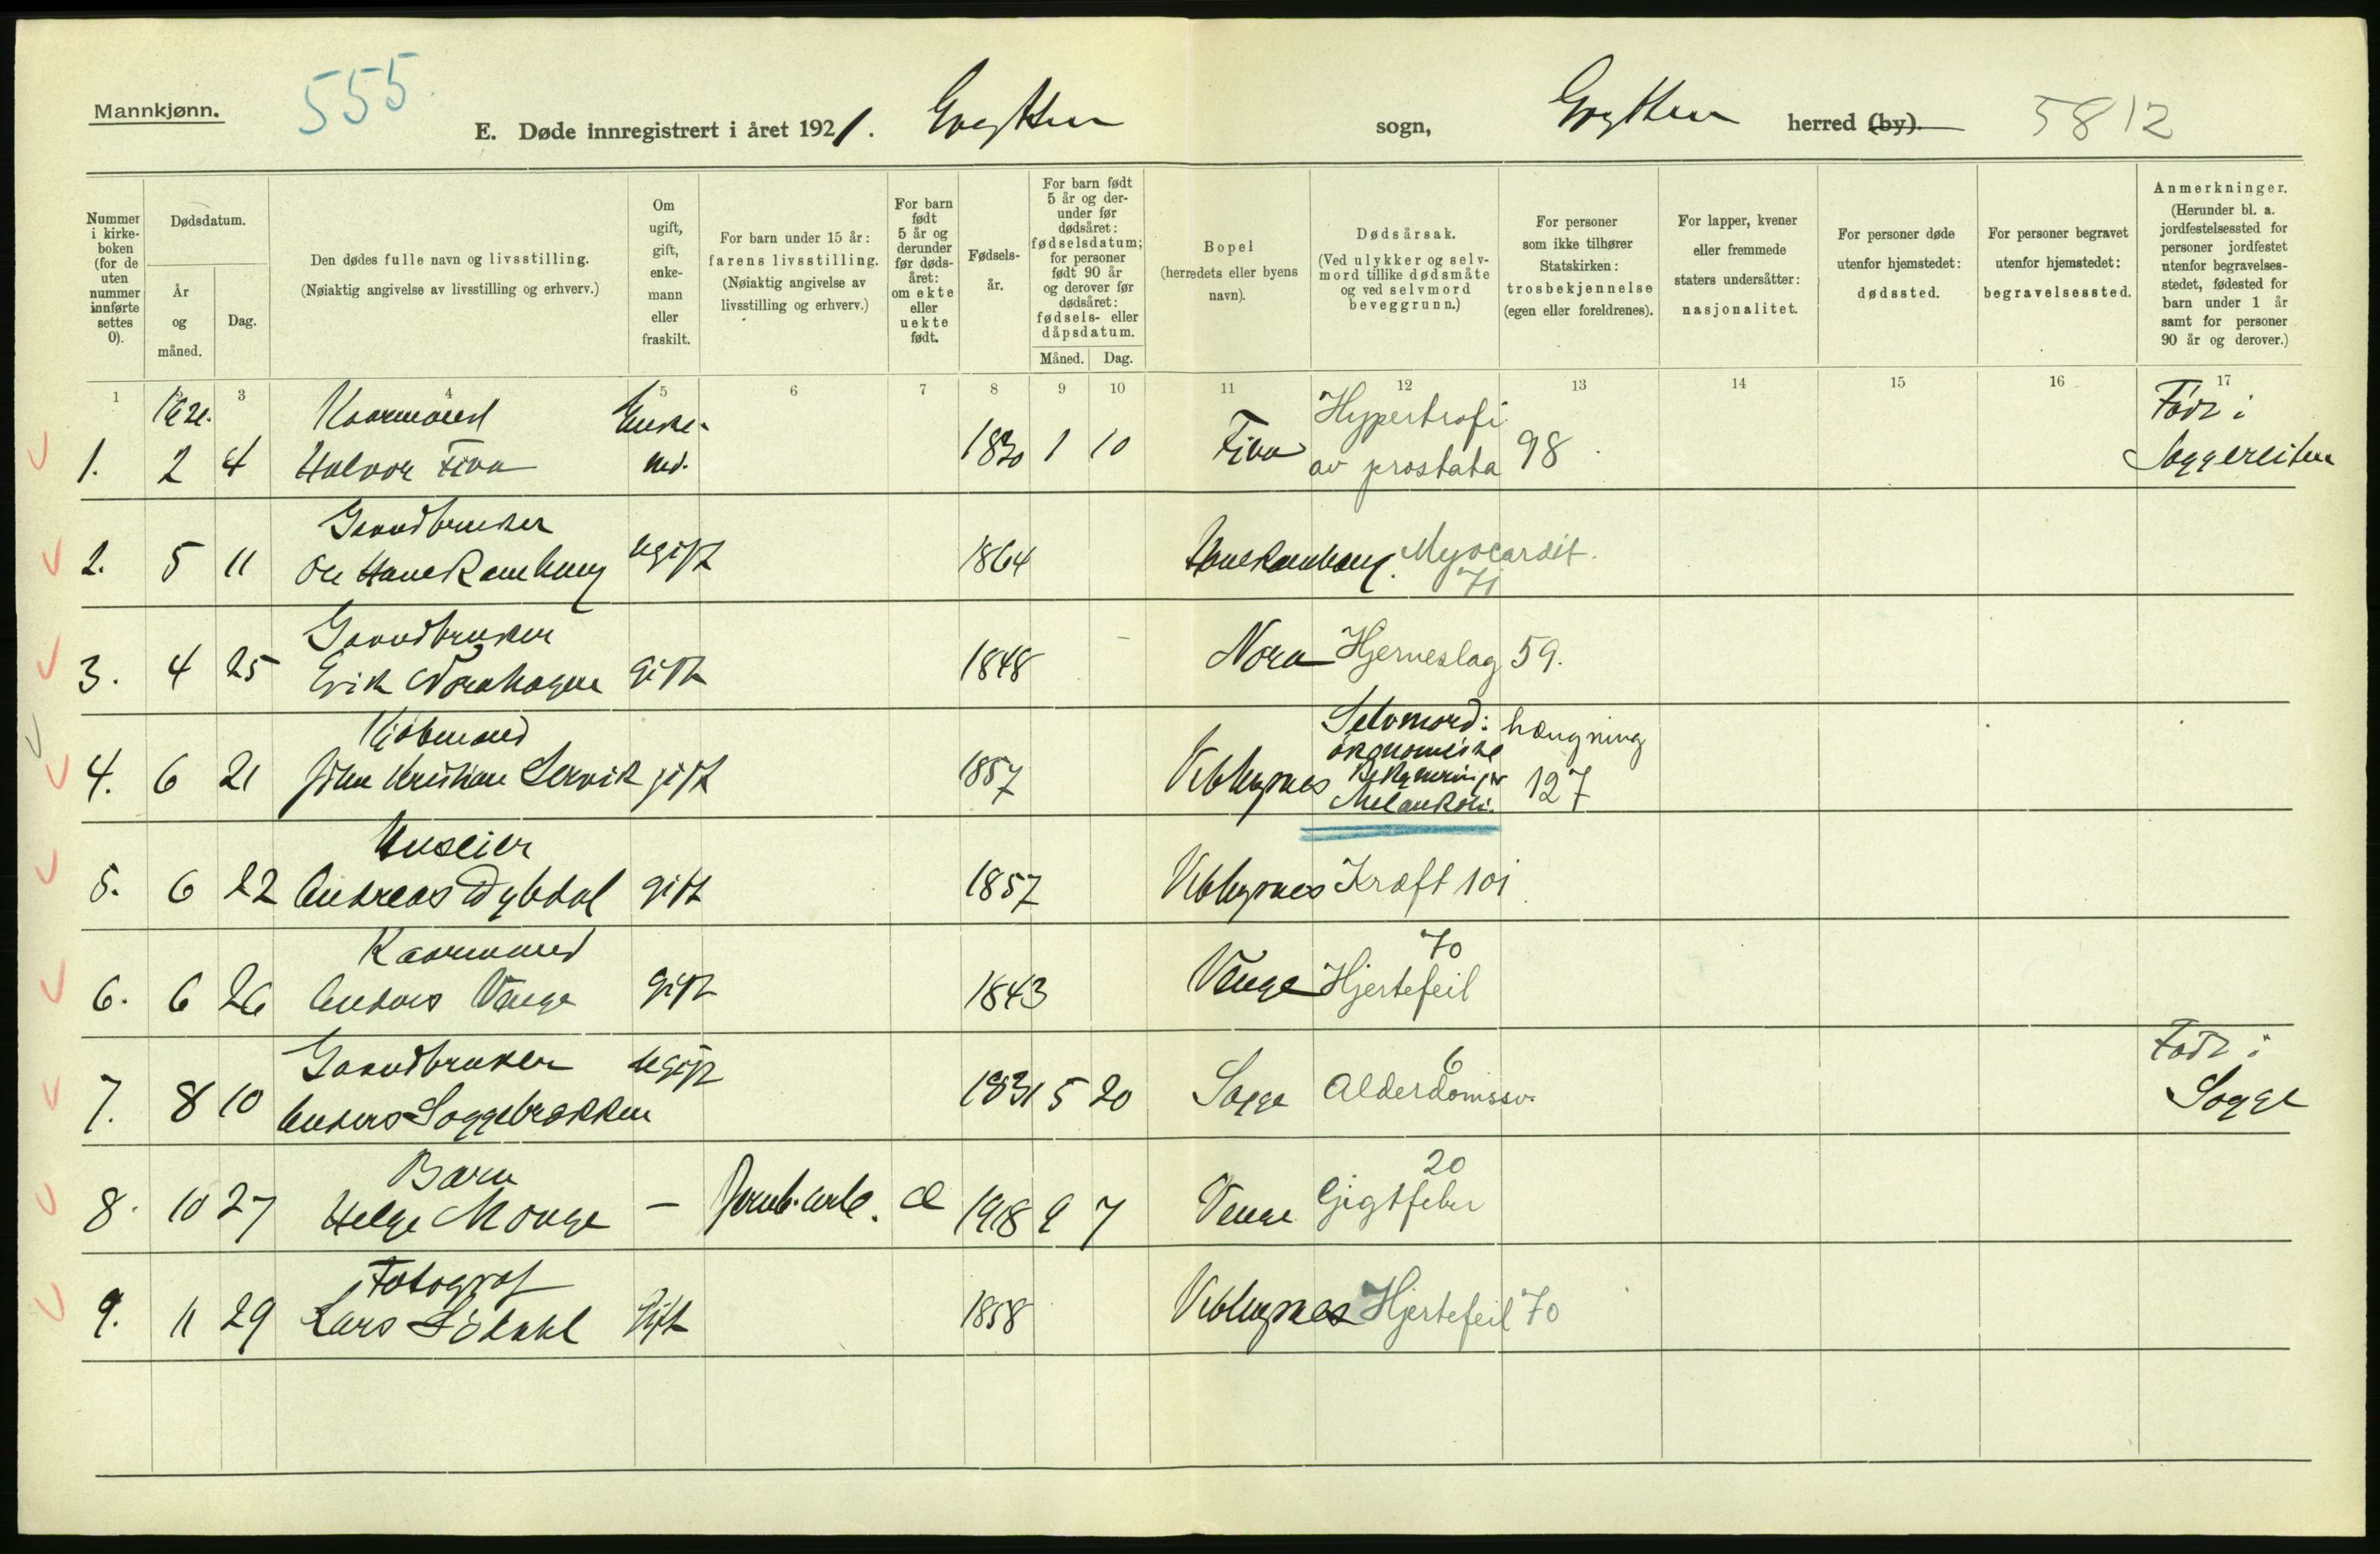 Mannkjønn.
555.
E. Døde innregistrert i året 1921. Grytten sogn, Grytten herred (by).
5812
Nummer i kirke- boken (for de uten nummer innførte settes 0).
Dødsdatum.
År og måned.
Dag.
Den dødes fulle navn og livsstilling.
(Nøiaktig angivelse av livsstilling og erhverv.)
Om ugift, gift, enke- mann eller fraskilt.
For barn under 15 år: farens livsstilling.
(Nøiaktig angivelse av livsstilling og erhverv.)
For barn født 5 år og derunder før døds- året: om ekte eller uekte født.
Fødsels- år.
For barn født 5 år og der- under før dødsåret: fødselsdatum; for personer født 90 år og derover før dødsåret: fødsels- eller dåpsdatum.
Måned. Dag.
Bopel (herredets eller byens navn).
Dødsårsak.
(Ved ulykker og selv- mord tillike dødsmåte og ved selvmord beveggrunn.)
For personer som ikke tilhører Statskirken: trosbekjennelse (egen eller foreldrenes).
For lapper, kvener eller fremmede staters undersåtter: nasjonalitet.
For personer døde utenfor hjemstedet: dødssted.
For personer begravet utenfor hjemstedet: begravelsessted.
Anmerkninger.
(Herunder bl. a. jordfestelsessted for personer jordfestet utenfor begravelses- stedet, fødested for barn under 1 år samt for personer 90 år og derover.)
1 3 4 5 6 7 8 9 10 11 12 13 14 15 16 17
Kaarmand Enke- Hypertrofi Født i
1. 2 4 Halvor Fiva md. 1830 1 10 Fiva av prostata 98 Soggereiten
Gaardbruker
2. 5 11 Ole Hanekamhaug ugift 1864 Hanekamhaug. Myocardit.
71
Gaardbruker
3. 4 25 Erik Norahagen gift 1848 Nora Hjerneslag 59.
Kjøbmand Selvmord: hængning
økonomiske
4. 6 21 Johan Kristian Servik gift 1857 Veblungsnes Bekymringer 127
Melankoli.
Huseier
5. 6 22 Andreas Dybdal gift 1857 Veblungsnes Kræft 101
Kaarmand 70
6. 6 26 Anders Venge gift 1843 Venge Hjertefeil
Gaardbruker ugift 6 Født i
7. 8 10 Anders Soggebrækken 1831 5 20 Sogge Alderdomssv. Sogge
Barn 20
8. 10 27 Helge Monge – Jernb. arb. æ 1918 9 7 Venge Gigtfeber
Fotograf
9. 11 29 Lars Sødahl Gift 1858 Veblungsnes Hjertefeil 70